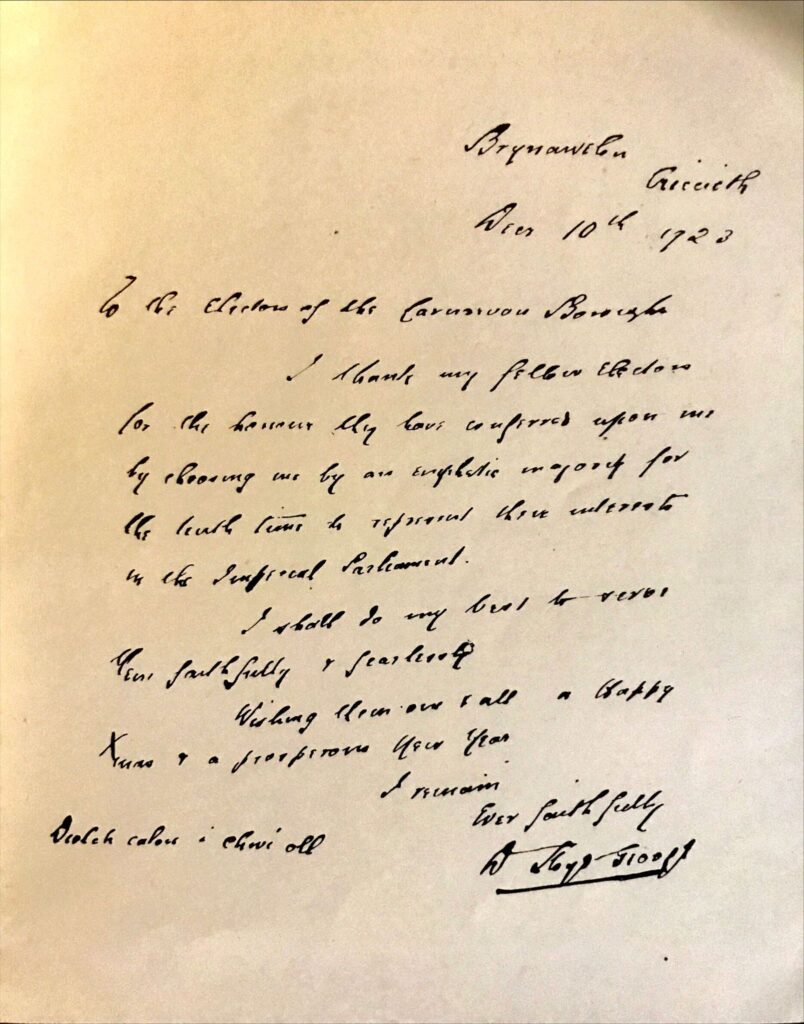 Brynawelon
Criccieth
Decr 10th 1923
To the Electors of the Carnarvon Boroughs
I thank my fellow Electors
for the honour they have conferred upon me
by choosing me by an emphatic majority for
the tenth time to represent their interests
in the Imperial Parliament.
I shall do my best to serve
them faithfully & fearlessly
Wishing them one & all a Happy
Xmas & a prosperous New Year
I remain
Ever faithfully
Diolch calon i chwi oll
D Lloyd George